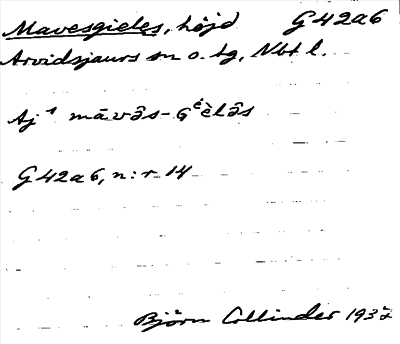 Mavesgieles, höjd G42a6
Arvidsjaurs sn o. tg, Nbt l.
Aj¹ māvə̂s-Gᵉèlə̂s
G42a6, n:r 14
Björn Collinder 1932